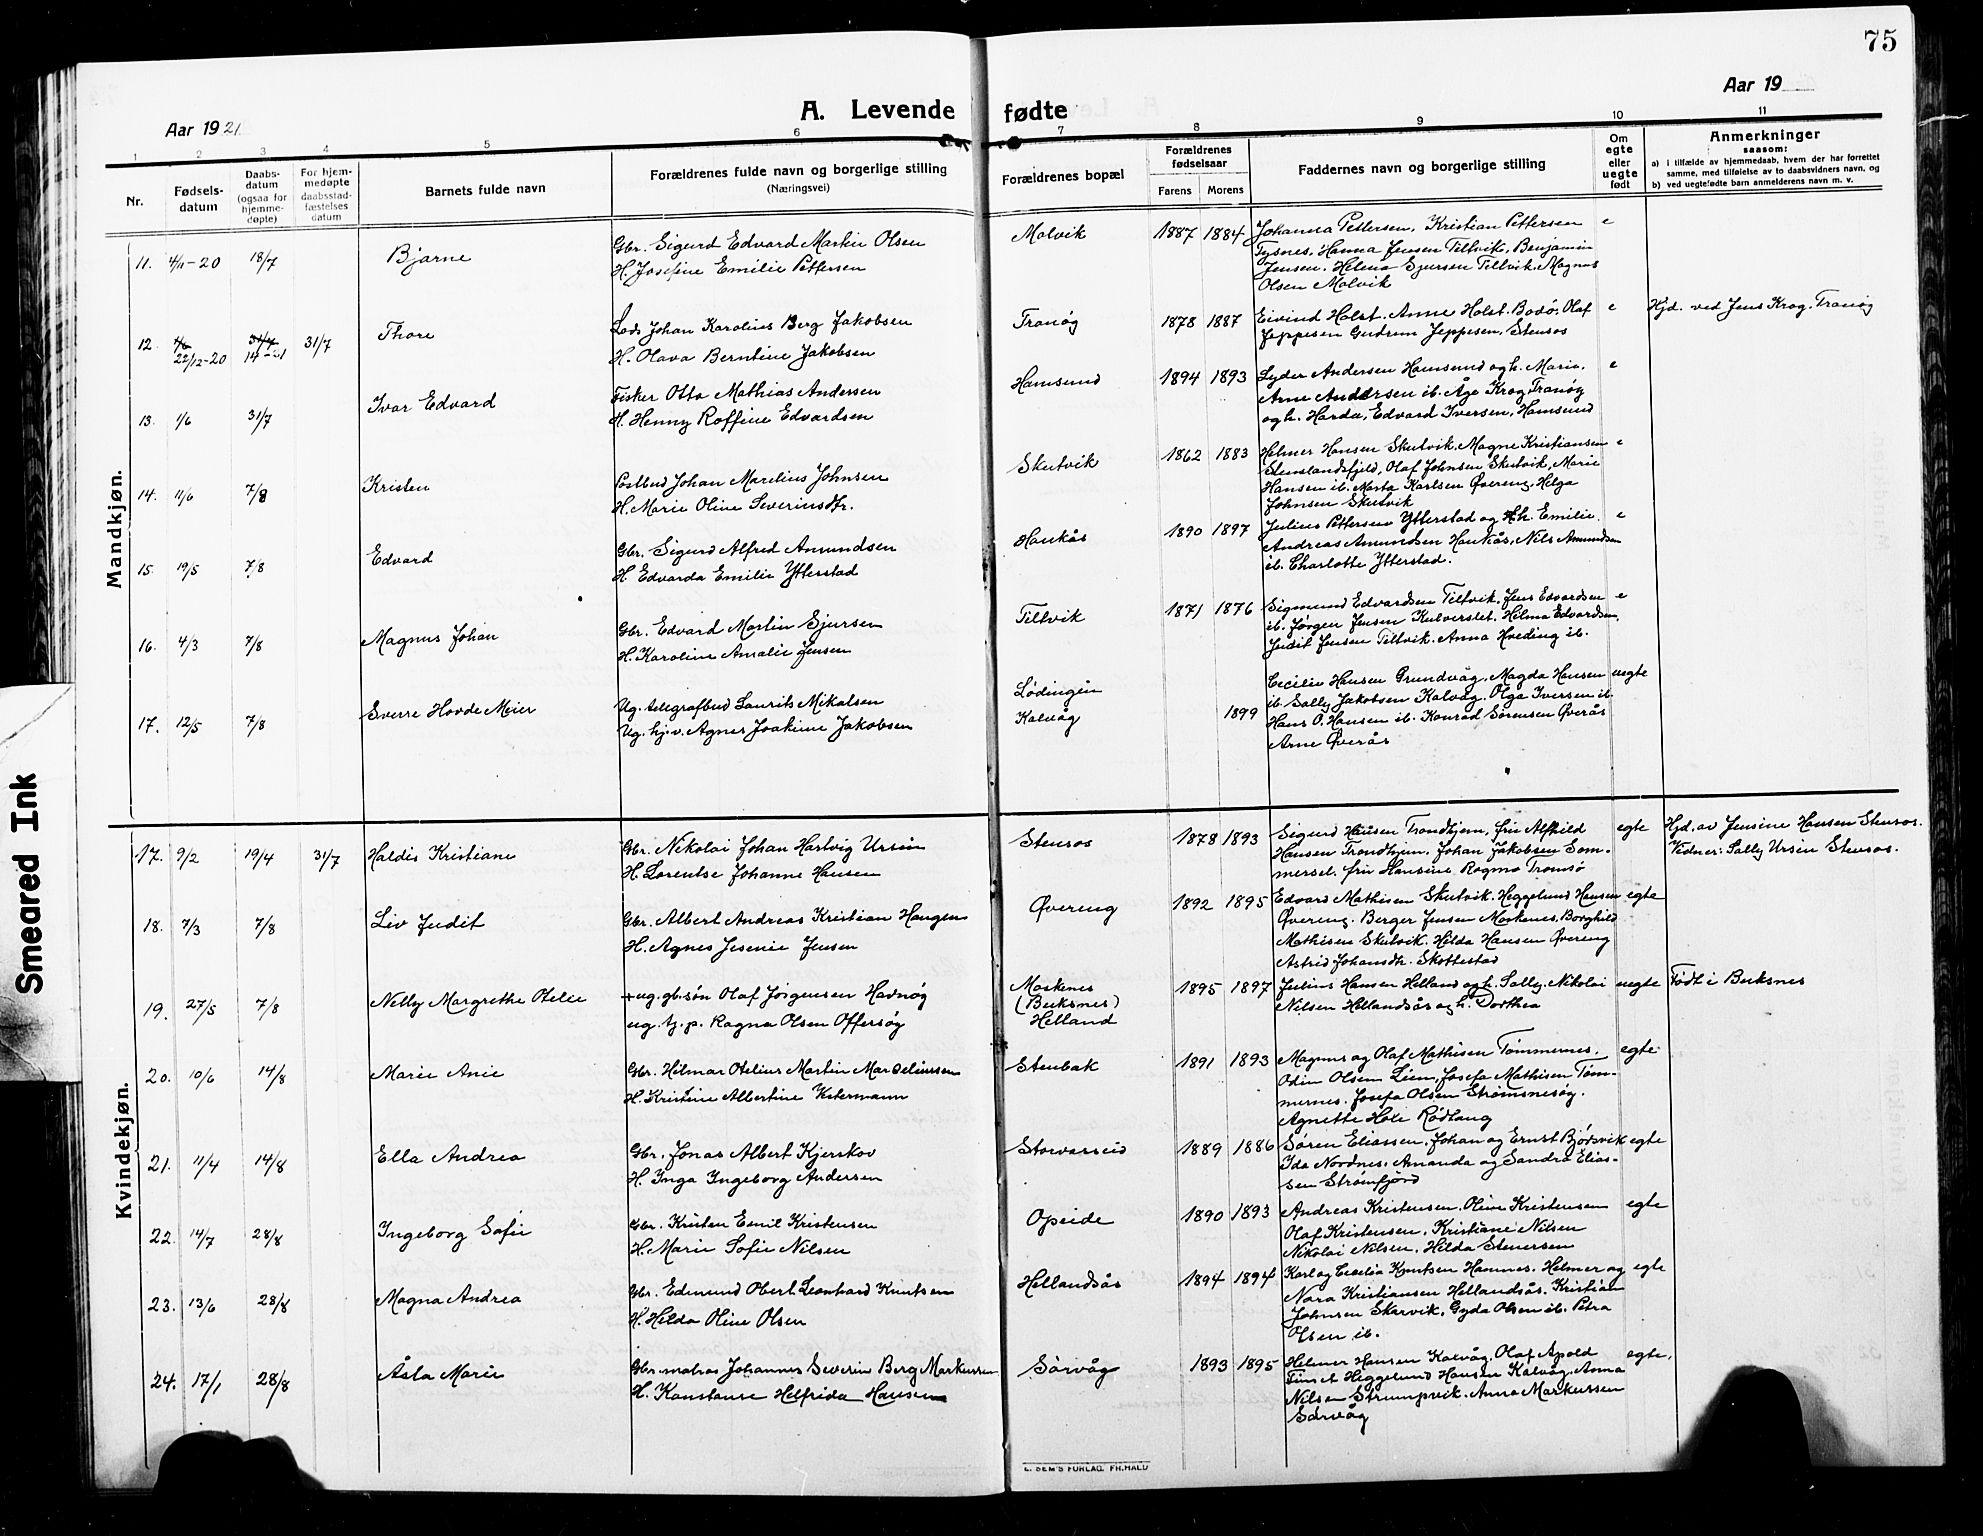 75
Aar 1921.
A. Levende fødte
Aar 19
1 2 3 4 5 6 7 8 9 10 11
Nr.
Fødsels-
datum
Daabs-
datum
(ogsaa for
hjemme-
døpte)
For hjem-
medøpte
daabsstad-
fæstelses
datum
Barnets fulde navn
Forældrenes fulde navn og borgerlige stilling
(Næringsvei)
Forældrenes bopæl
Forældrenes
fødselsaar
Farens Morens
Faddernes navn og borgerlige stilling
Om
egte
eller
uegte
født
Anmerkninger
saasom:
a) i tilfælde av hjemmedaab, hvem der har forrettet
samme, med tilføielse av to daabsvidners navn, og
b) ved uegtefødte barn anmelderens navn m. v.
Mandkjøn.
11. 4/11-20 18/7 Bjarne
Gbr. Sigurd Edvard Martin Olsen
H. Josefine Emilie Pettersen
Molvik 1887 1884
Johanna Pettersen, Kristian Pettersen e
Tysnes, Hanna Jensen Tiltvik, Benjamin
Jensen. Helena Sjursen Tiltvik, Magnus
Olsen Molvik
12. 22/12-20 31/7 14-21 31/7 Thore
Lods Johan Karolius Berg Jakobsen
H. Olava Berntine Jakobsen
Tranøy 1878 1887
Eivind Holst. Anne Holst. Bodø, Olaf e
Jeppesen Gudrun Jeppesen, Stensos
Hjd. ved Jens Krog, Tranøy
13. 1/6 31/7 Ivar Edvard
Fisker Otto Mathias Andersen
H. Henny Roffine Edvardsen
Hamsund 1894 1893
Lyder Andersen Hamsund og h. Marie, e
Arne Andersen ib. Åge Krog Tranøy
og h. Harda, Edvard Iversen, Hamsund
14. 11/6 7/8 Kristen
Postbud Johan Marelius Johnsen
H. Marie Oline Severinsdtr.
Skutvik 1862 1883
Helmer Hansen Skutvik, Magne Kristiansen e
Stenslandsfjeld, Olaf Johnsen Skutvik, Marie
Hansen ib. Marta Karlsen Øvereng, Helga
Johnsen Skutvik
15. 19/5 7/8 Edvard
Gbr. Sigurd Alfred Amundsen
H. Edvarda Emilie Ytterstad
Haukås 1890 1897
Julius Pettersen Ytterstad og h. Emilie, e
Andreas Amundsen Haukås, Nils Amundsen
ib. Charlotte Ytterstad.
16. 4/3 7/8 Magnus Johan
Gbr. Edvard Martin Sjursen
H. Karoline Amalie Jensen
Tiltvik 1871 1876
Sigmund Edvardsen Tiltvik, Jens Edvardsen e
ib. Jørgen Jensen Kulverslet. Helma Edvardsen,
Judit Jensen Tiltvik. Anna Hveding ib.
17. 12/5 7/8 Sverre Hovde Meier
Ug. telegrafbud Laurits Mikalsen
Ug. hj. v. Agnes Joakime Jakobsen
Lødingen
Kalvåg 1899
Cecilie Hansen Grundvåg, Magda Hansen uegte
ib. Sally Jakobsen Kalvåg, Olga Iversen ib.
Hans O. Hansen ib. Konrad Sørensen Øverås
Arne Øverås
Kvindekjøn.
17. 9/2 19/4 31/7 Haldis Kristiane
Gbr. Nikolai Johan Hartvig Ursin
H. Lorentse Johanne Hansen
Stensos 1878 1893
Sigurd Hansen Trondhjem, fru Alfhild egte
Hansen Trondhjem, Johan Jakobsen Som-
mersel. fru Hansine Ragma Tromsø
Hjd. av Jensine Hansen Stensos.
Vidner: Sally Ursin Stensos.
18. 7/3 7/8 Liv Judit
Gbr. Albert Andreas Kristian Haugen
H. Agnes Jesenie Jensen
Øvereng 1892 1895
Edvard Mathisen Skutvik. Heggelund Hansen egte
Øvereng. Berger Jensen Moskenes, Borghild
Mathisen Skutvik. Hilda Hansen Øvereng
Astrid Johansdtr. Skottestad
19. 27/5 7/8 Nelly Margrethe Otelie
+ ug. gb. søn Olaf Jørgensen Havnøy
ug. tj. p. Ragna Olsen Offersøy
Moskenes
(Buksnes)
Helland 1895 1897
Julius Hansen Helland og h. Sally, Nikolai uegte
Nilsen Hellandsås og h. Dorthea
Født i Buksnes
20. 10/6 14/8 Marie Anie
Gbr. Hilmar Otelius Martin Marseliussen
H. Kristine Albertine Ketermann
Stenbak 1891 1893
Magnus og Olaf Mathisen Tømmernes, egte
Odin Olsen Lien, Josefa Mathisen Tøm-
mernes. Josefa Olsen Strømsnesøy.
Agnette Hole Rødtang
21. 11/4 14/8 Ella Andrea
Gbr. Jonas Albert Kjerskov
H. Inga Ingeborg Andersen
Storvarseid 1889 1886
Søren Eliassen, Johan og Ernst Bjørsvik egte
Ida Nordnes, Amanda og Sandra Elias-
sen Strømfjord
22. 14/7 28/8 Ingeborg Sofie
Gbr. Kristen Emil Kristensen
H. Marie Sofie Nilsen
Opeide 1890 1893
Andreas Kristensen, Oline Kristensen egte
Olaf Kristensen, Kristiane Nilsen
Nikolai Nilsen, Hilda Stenersen
23. 13/6 28/8 Magna Andrea
Gbr. Edmund Obert Leonhard Knutsen
H. Hilda Oline Olsen
Hellandsås 1894 1894
Karl og Cecelia Knutsen Hamnes, Helmer og egte
Nora Kristiansen Hellandsås, Kristian
Johnsen Skarvik, Gyda Olsen ib. Petra
Olsen ib.
24. 17/1 28/8 Åsta Marie
Gbr. matros Johannes Severin Berg Markussen
H. Konstanse Helfrida Hansen
Sørvåg 1893 1895
Helmer Hansen Kalvåg, Olaf Apold egte.
Finset Heggelund Hansen Kalvåg, Anna
Nilsen Strumpvik. Anna Markussen
Sørvåg
E. SEM'S FORLAG. FR.HALD
Smeared Ink